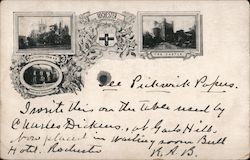 ROCHESTER
THE CASTLE
See Pickwick Papers.
I write this on the table used by
Charles Dickens, at Gads Hill.
now placed in waiting room Bull
Hotel. Rochester
R.A.B.